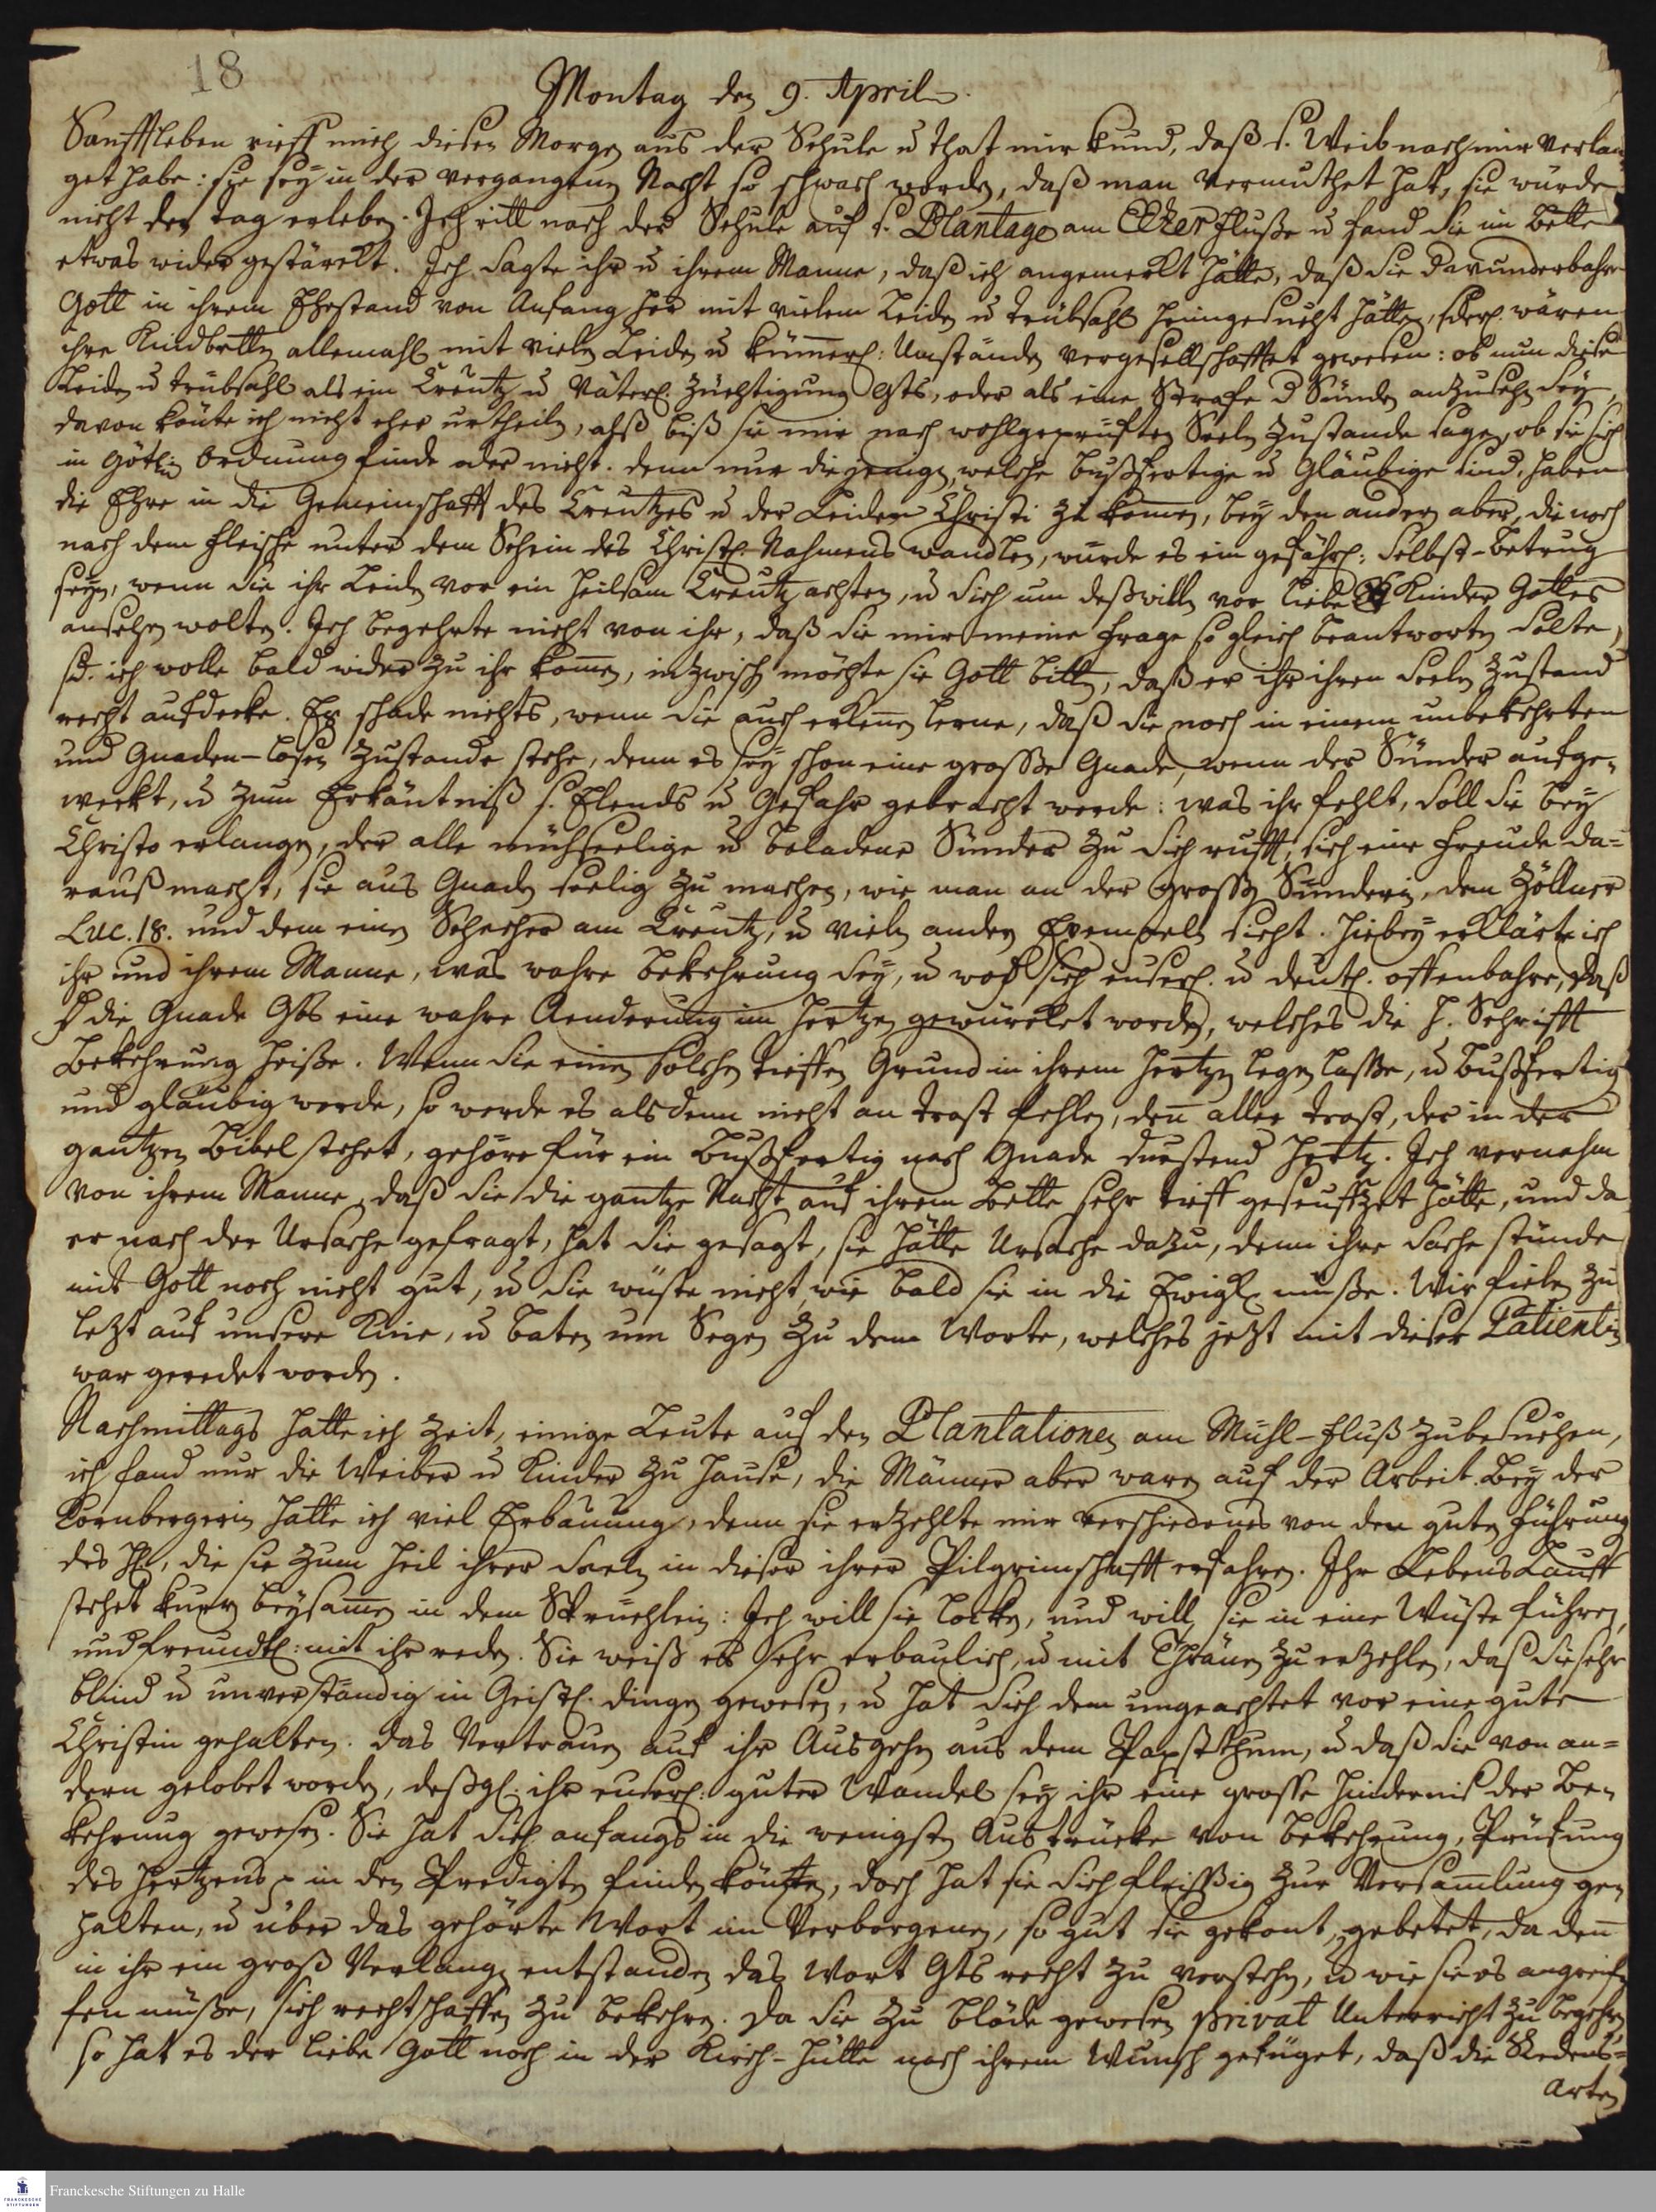 18
Montag den 9. April.
Sanfftleben rieff mich diesen Morgen aus der Schule u that mir kund, daß s. Weib nach mir verlan-
get habe: sie sey in der vergangenen Nacht so schwach worden, daß man vermuthet hat, sie würde
nicht den tag erleben. Ich ritt nach der Schule auf s. Plantage am Ebenezer Fluße u fand sie im bette
etwas wider gestärckt. Ich sagte ihr u ihrem Manne, daß ich angemerkt hätte, daß sie der wunderbahre
Gott in ihrem Ehestand von Anfang her mit vielem Leiden u trübsahl heimgesucht hätte, sonderl. wären
ihre Kindbetten allemahl mit vielen Leiden u kümerl: Umständen vergesellschafftet gewesen: ob nun diese
Leiden u trübsahl als ein Creutz u Väterl. Züchtigung Gts, oder als eine Strafe d Sünden anzusehen sey,
davon könte ich nicht eher urtheilen, alß biß sie mir nach wohlgeprüfften Seelen Zustande sagen, ob sie sich
in Götlichen Ordnung finde oder nicht. denn nur diejenige, welche bußfertige u Gläubige sind, haben
die Ehre in die Gemeinschafft des Creutzes u der Leiden Christi zu komen, bey den andern aber, die noch
nach dem Fleische unter dem Schein des Christl. Nahmens wandlen, würde es ein gefährl: Selbst-betrug
seyn, wenn sie ihr Leiden vor ein heilsam Creutz achten, u sich um deßwillen vor liebe Kinder Gottes
ansehen wolten. Ich begehrte nicht von ihr, daß sie mir meine Frage so gleich beantworten solte,
sd. ich wolle bald wider zu ihr komen, inzwisch möchte sie Gott bitten, daß er ihr ihren Seelen Zustand
recht aufdecke. Es schade nichts, wenn sie auch erkennen lerne, daß sie noch in einem unbekehrten
und Gnaden-losen Zustande stehe, denn es sey schon eine grosse Gnade, wenn der Sünder aufge-
weckt, u zum Erkäntniß s. Elends u Gefahr gebracht werde: was ihr fehlt, soll sie bey
Christo erlangen, der alle mühseelige u beladene Sünder zu sich rufft, sich eine Freude da-
rauß macht, sie aus Gnaden seelig zu machen, wie man an der grossen Sünderin, dem Zöllner
Luc. 18. und dem einen Schecher am Creutz, u vielen andern Exempeln sieht. Hiebey erklärte ich
ihr und ihrem Manne, was wahre bekehrung sey, u wo sich euserl. u deutl. offenbahre, daß
d die Gnade Gts eine wahre Aenderung im Hertzen gewürcket worden, welches die H. Schrifft
bekehrung heiße. Wenn sie einen solchen tieffen Grund in ihrem Hertzen legen lasse, u bußfertig
und gläubig werde, so werde es alsdenn nicht an trost fehlen, den aller trost, der in der
gantzen bibel stehet, gehöre für ein bußfertig nach Gnade durstend Hertz. Ich vernahm
von ihrem Manne, daß sie die gantze Nacht auf ihrem bette sehr tieff geseuffzet hätte, und da
er nach der Ursache gefragt, hat sie gesagt, sie hätte Ursache dazu, denn ihre sache stünde
mit Gott noch nicht gut, u sie wüste nicht, wie bald sie in die Ewigk. müße. Wir fielen zu
letzt auf unsere Knie, u baten um Segen zu dem Worte, welches jetzt mit dieser Patientin
war geredet worden.
Nachmittags hatte ich Zeit, einige Leute auf den Plantationen am Mühl-Fluß zubesuchen,
ich fand nur die Weiber u Kinder zu Hause, die Männer aber waren auf der Arbeit. Bey der
Cornbergerin hatte ich viel Erbauung, denn sie erzehlte mir verschiedenes von der guten Führung
des H, die sie zum Heil ihrer Seelen in dieser ihrer Pilgrimschafft erfahren. Ihr LebensLauff
stehet kurz beysamen in dem Sprüchlein: Ich will sie locken, und will sie in eine Wüste führen,
und freundl: mit ihr reden. Sie weiß es sehr erbaulich, u mit Thränen zu erzehlen, daß sie sehr
blind u unverständig in Geistl. dingen gewesen, u hat sich dem ungeachtet vor eine gute
Christin gehalten. Das Vertrauen auf ihr Ausgehen aus dem Papstthum, u daß sie von an-
dern gelobet worden, deßgl. ihr euserl: guter Wandel sey ihr eine grosse Hinderniß der Be-
kehrung gewesen. Sie hat sich anfangs in die wenigsten Ausdrücke von bekehrung, Prüfung
des Hertzens in den Predigten finden könten, doch hat sie sich fleissig zur Versamlung ge-
halten, u über das gehörte Wort im Verborgenen, so gut sie gekont, gebetet, da den
in ihr ein groß Verlangen entstanden das Wort Gts recht zu verstehen, u wie sie es angreif-
fen müße, sich rechtschaffen zu bekehren. Da sie zu blöde gewesen privat Unterricht zu begehren
so hat es der liebe Gott noch in der Kirch-Hütte nach ihrem Wunsch gefüget, daß die Redens-
arten
Franckesche Stiftungen zu Halle